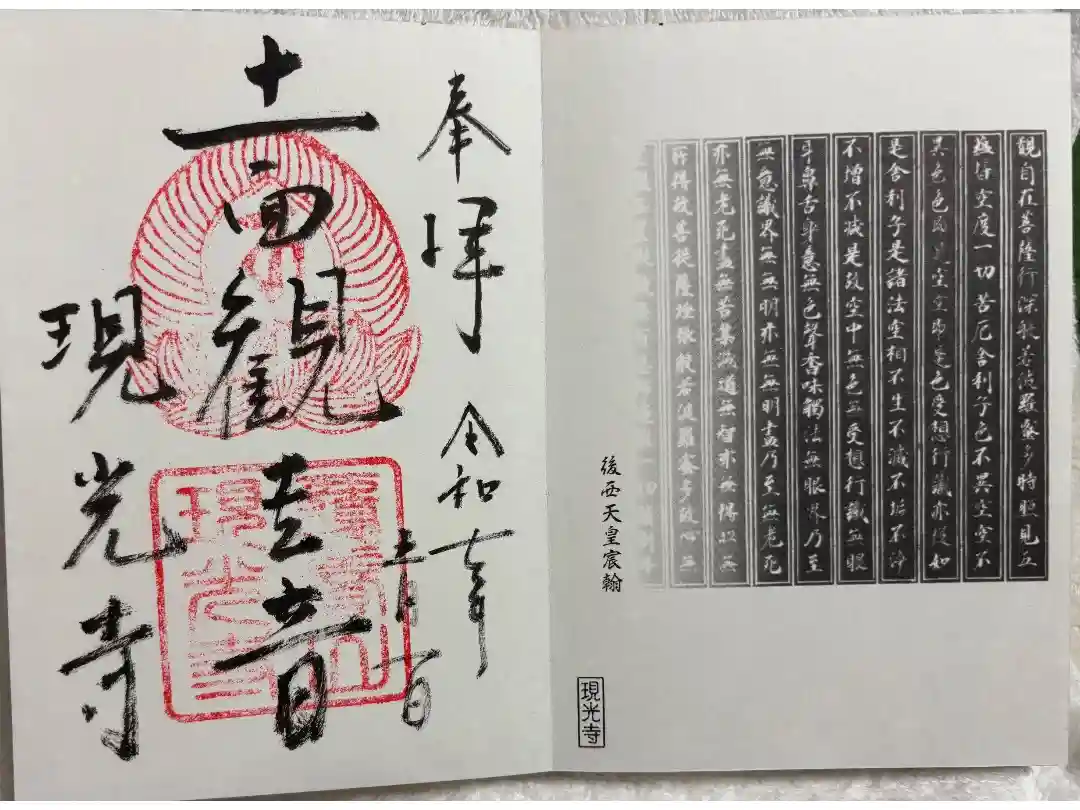 觀自在菩薩行深般若波羅蜜多時照見五
蘊皆空度一切苦厄舍利子色不異空空不
異色色即是空空即是色受想行識亦復如
是舍利子是諸法空相不生不滅不垢不淨
不增不減是故空中無色無受想行識無眼
耳鼻舌身意無色聲香味觸法無眼界乃至
無意識界無無明亦無無明盡乃至無老死
亦無老死盡無苦集滅道無智亦無得以無
所得故菩提薩埵依般若波羅蜜多故心無
後西天皇宸翰
現光寺
奉拝
令和七年
十一月一日
十一面観世音
現光寺